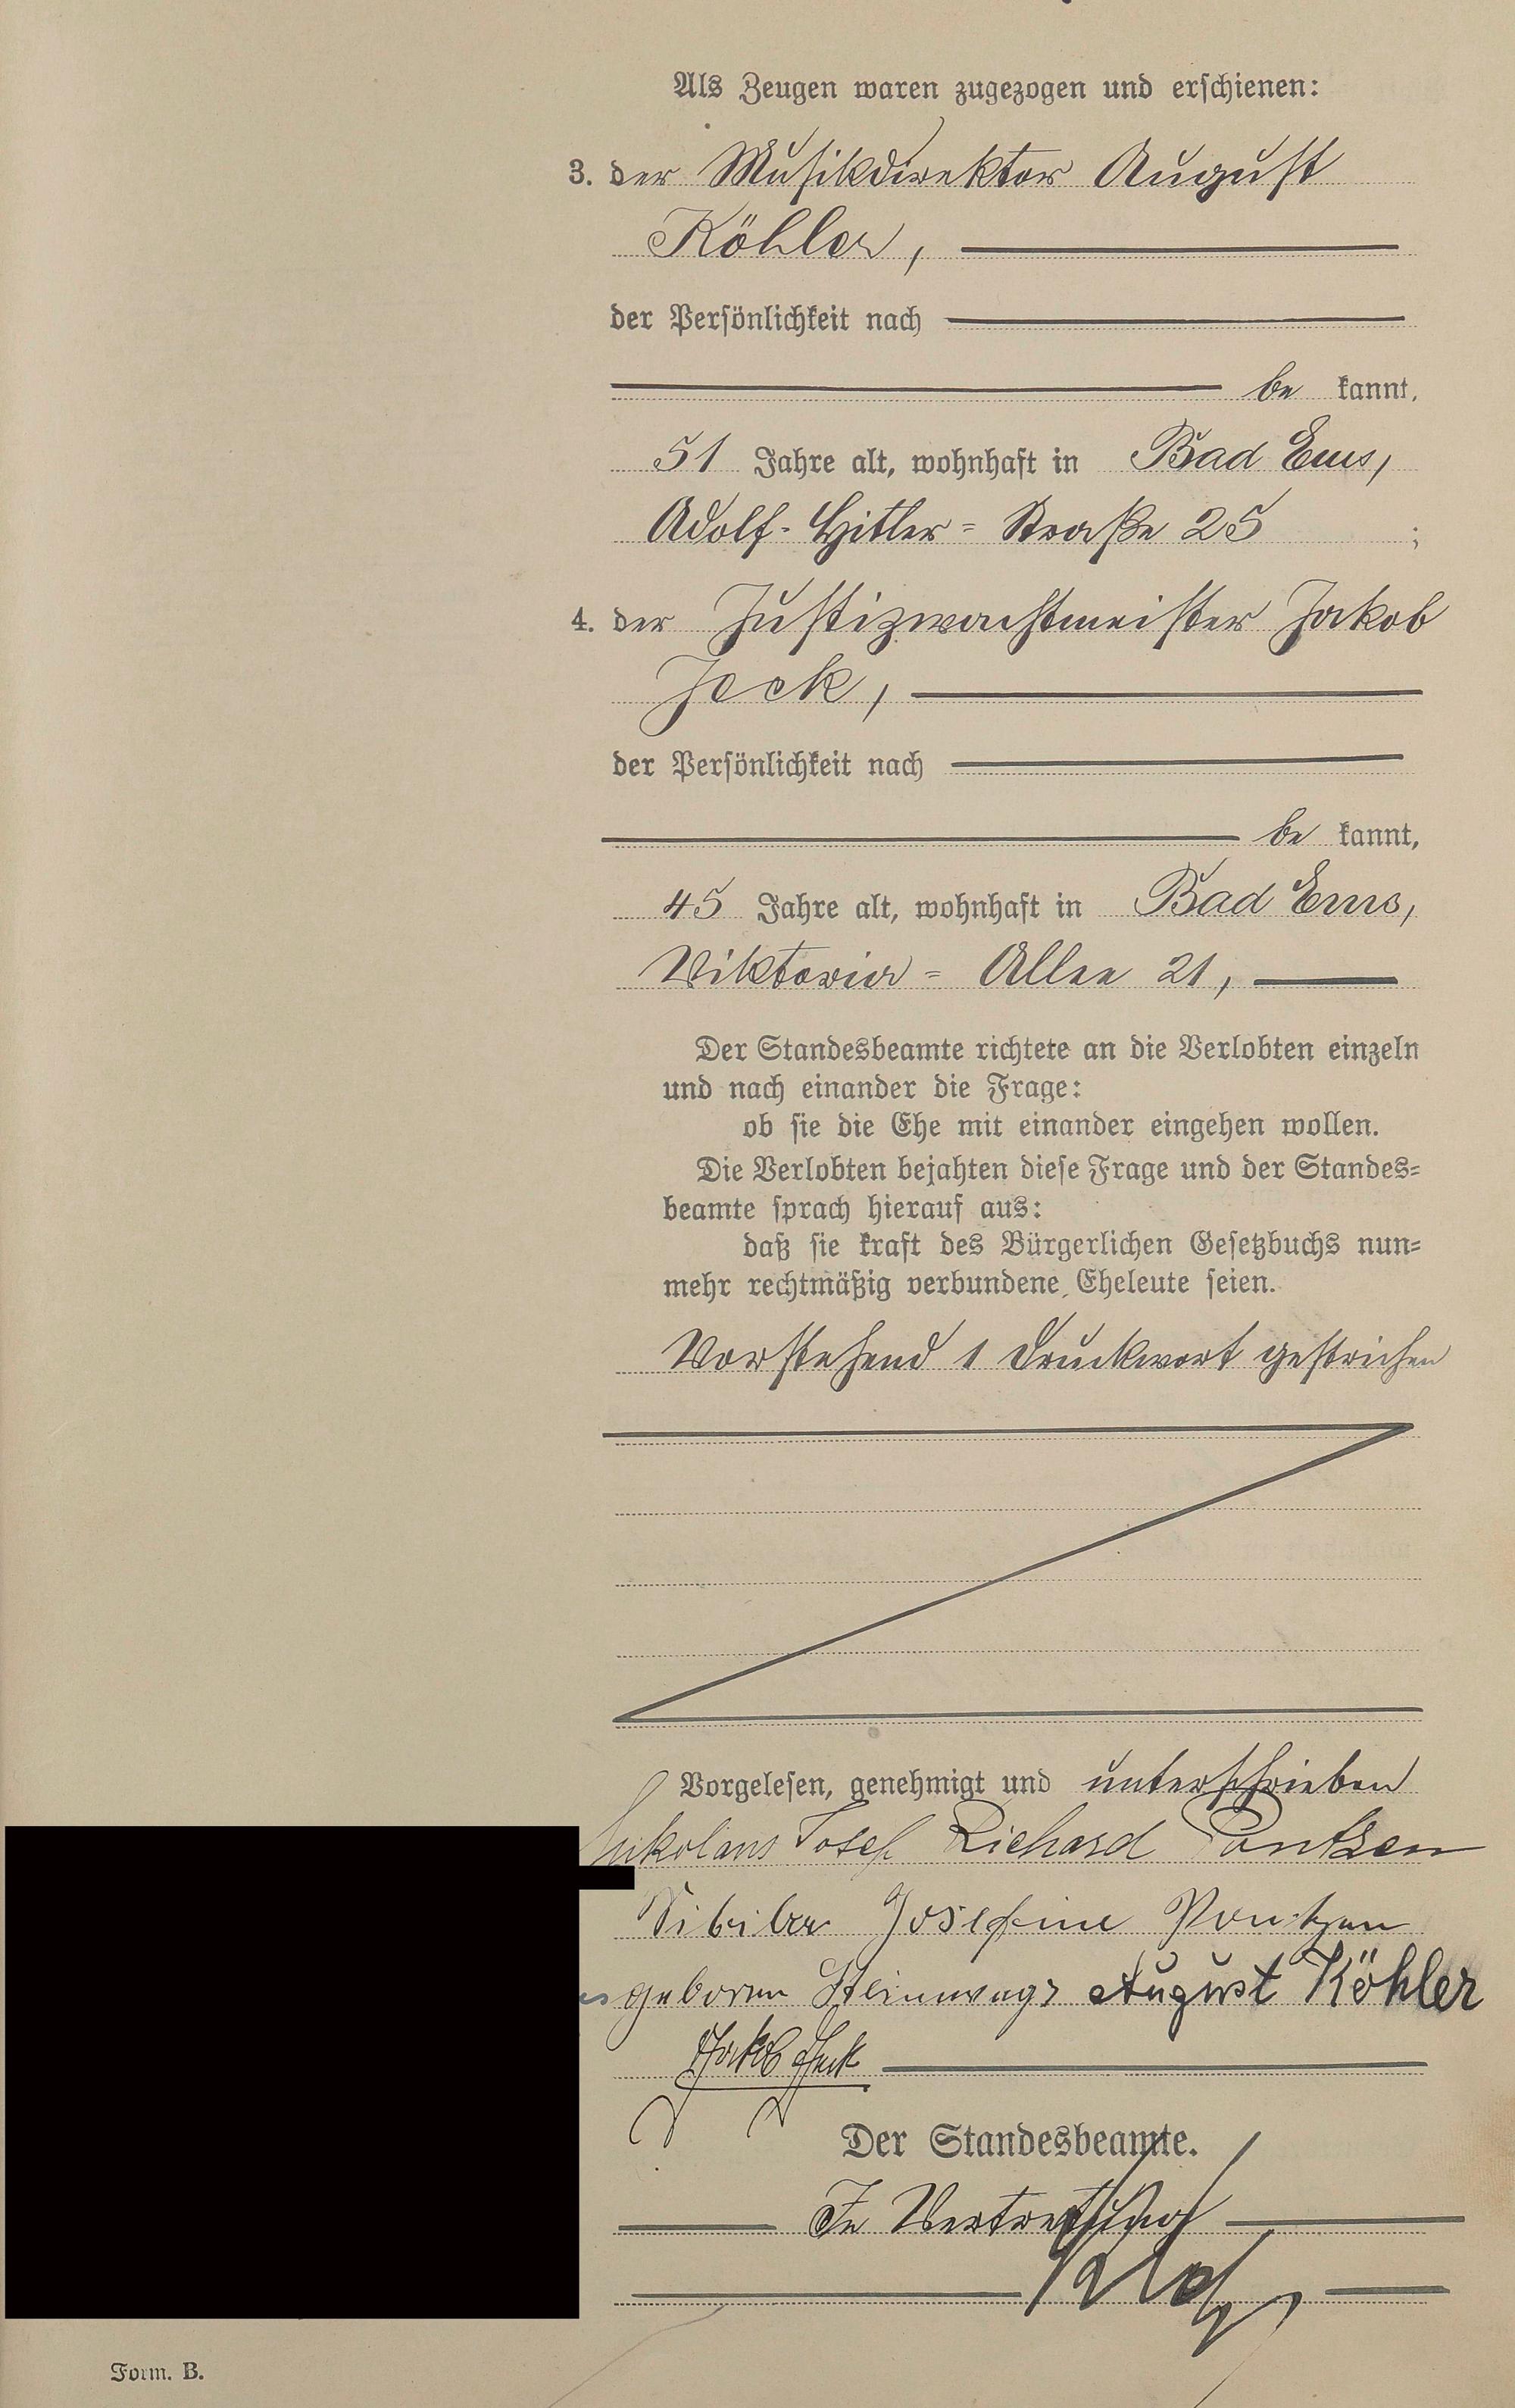 Als Zeugen waren zugezogen und erschienen:
3. der Musikdirektor August
Köhler,
der Persönlichkeit nach
be kannt,
51 Jahre alt, wohnhaft in Bad Ems,
Adolf-Hitler=Straße 25 ;
4. der Justizwachtmeister Jakob
Jeck,
der Persönlichkeit nach
be kannt,
45 Jahre alt, wohnhaft in Bad Ems,
Viktoria=Allee 21,
Der Standesbeamte richtete an die Verlobten einzeln
und nach einander die Frage:
ob sie die Ehe mit einander eingehen wollen.
Die Verlobten bejahten diese Frage und der Standes=
beamte sprach hierauf aus:
daß sie kraft des Bürgerlichen Gesetzbuchs nun=
mehr rechtmäßig verbundene Eheleute seien.
Vorstehend 1 Druckwort gestrichen
Vorgelesen, genehmigt und unterschrieben
Nikolaus Josef Richard Pontzen
Josefine Pontzen
geboren August Köhler
Jakob Jeck
Der Standesbeamte.
In Vertretung
Form. B.